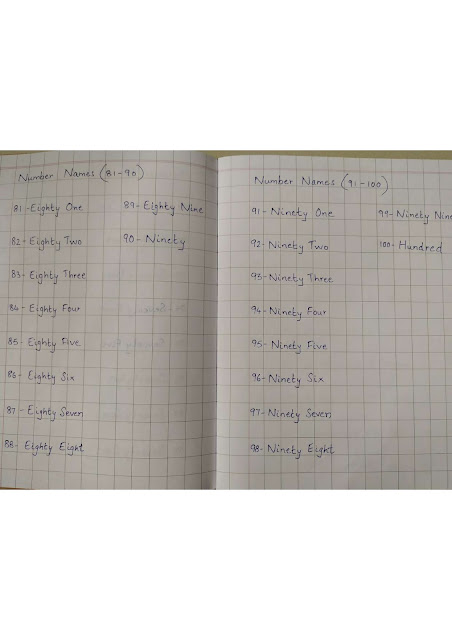 Number Names (81-90)
81-Eighty One
82-Eighty Two
83-Eighty Three
84-Eighty Four
85-Eighty Five
86-Eighty Six
87-Eighty Seven
88-Eighty Eight
89-Eighty Nine
90-Ninety
Number Names (91-100)
91-Ninety One
92-Ninety Two
93-Ninety Three
94-Ninety Four
95-Ninety Five
96-Ninety Six
97-Ninety Seven
98-Ninety Eight
99-Ninety Nine
100-Hundred